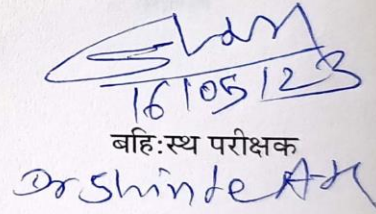 16/05/23
बहि:स्थ परीक्षक
Dr Shinde A